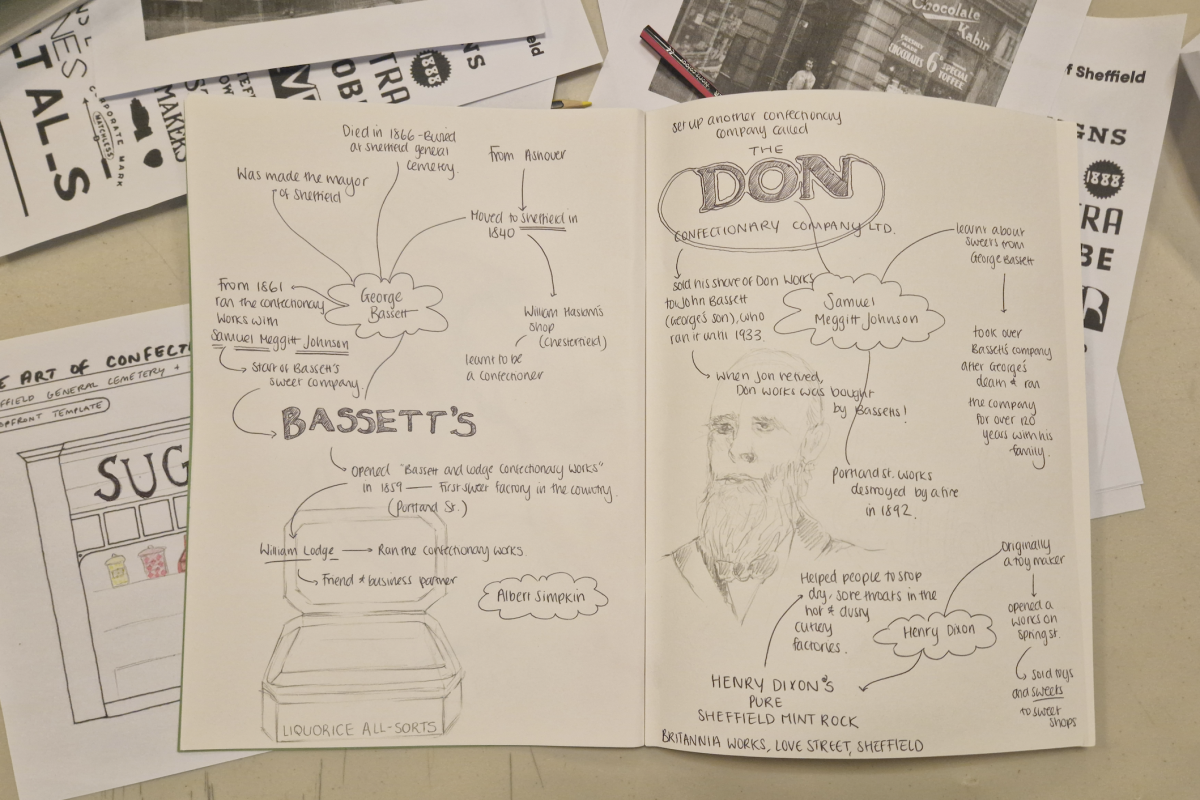 Died in 1866 - Buried
at sheffield general
cemetery.
Was made the mayor
of Sheffield
From Ashover
Moved to sheffield in
1840
William Haslam's
shop
(Chesterfield)
learnt to be
a confectioner
George
Bassett
From 1861
ran the confectionary
works with
Samuel Meggitt Johnson
start of Bassett's
sweet company.
BASSETT'S
opened "Bassett and Lodge confectionary works"
in 1859 — First sweet factory in the country.
(Portland St.)
William Lodge
Ran the confectionary works.
Friend & business partner
Albert Simpkin
LIQUORICE ALL-SORTS
set up another confectionary
company called
THE
DON
CONFECTIONARY COMPANY LTD.
learnt about
sweets from
George Bassett
Samuel
Meggitt Johnson
sold his share of Don Works
to John Bassett
(George's son), who
ran it until 1933.
when Jon retired,
Don works was bought
by Bassetts!
took over
Bassett's company
after George's
death & ran
the company
for over 120
years with his
family.
Portland st. works
destroyed by a fire
in 1892.
originally
a toy maker
opened a
works on
Spring st.
sold toys
and sweets
to sweet
shops
Helped people to stop
dry, sore throats in the
hot & dusty
cutlery
factories.
Henry Dixon
HENRY DIXON'S
PURE
SHEFFIELD MINT ROCK
BRITANNIA WORKS, LOVE STREET, SHEFFIELD
Chocolate
Kabin
CHOCOLATES
6
SPECIAL
TOFFEE
f Sheffield
GNS
1888
TRA
BE
R
eld
NS
1888
TRA
OBE
MAKERS
CORPORATE MARK
MATCHLESS
NES
LT
AL-S
E ART OF CONFECT
FFIELD GENERAL CEMETERY +
OPFRONT TEMPLATE
SUG